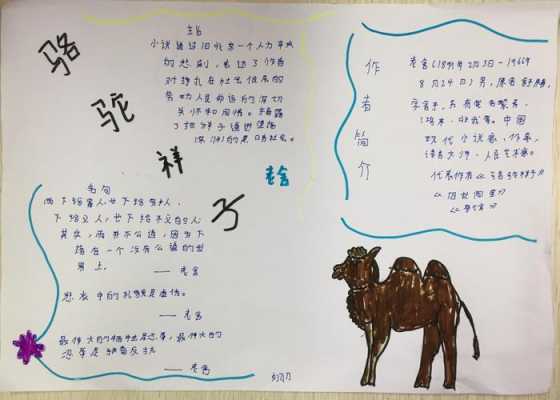 骆
驼
祥
子
老舍
主旨
小说描写旧北京一个人力车夫
的悲剧,表达了作者
对挣扎在社会低层的
劳动人民命运的深切
关怀和同情。揭露
了把祥子逼进堕落
深渊的黑暗社会。
作者简介
老舍(1899年2月3日-1966年
8月24日)男,原名舒庆春,
字舍予,另有笔名絜青、
鸿来、非我等。中国
现代小说家、作家,
语言大师、人民艺术家。
代表作有《骆驼祥子》
《四世同堂》
《茶馆》
名句
雨下给富人,也下给穷人,
下给义人,也下给不义的人;
其实,雨并不公道,因为下
落在一个没有公道的世
界上.
——老舍
悲哀中的礼貌是虚伪。
——老舍
最伟大的牺牲是忍辱,最伟大的
忍辱是预备反抗
——老舍